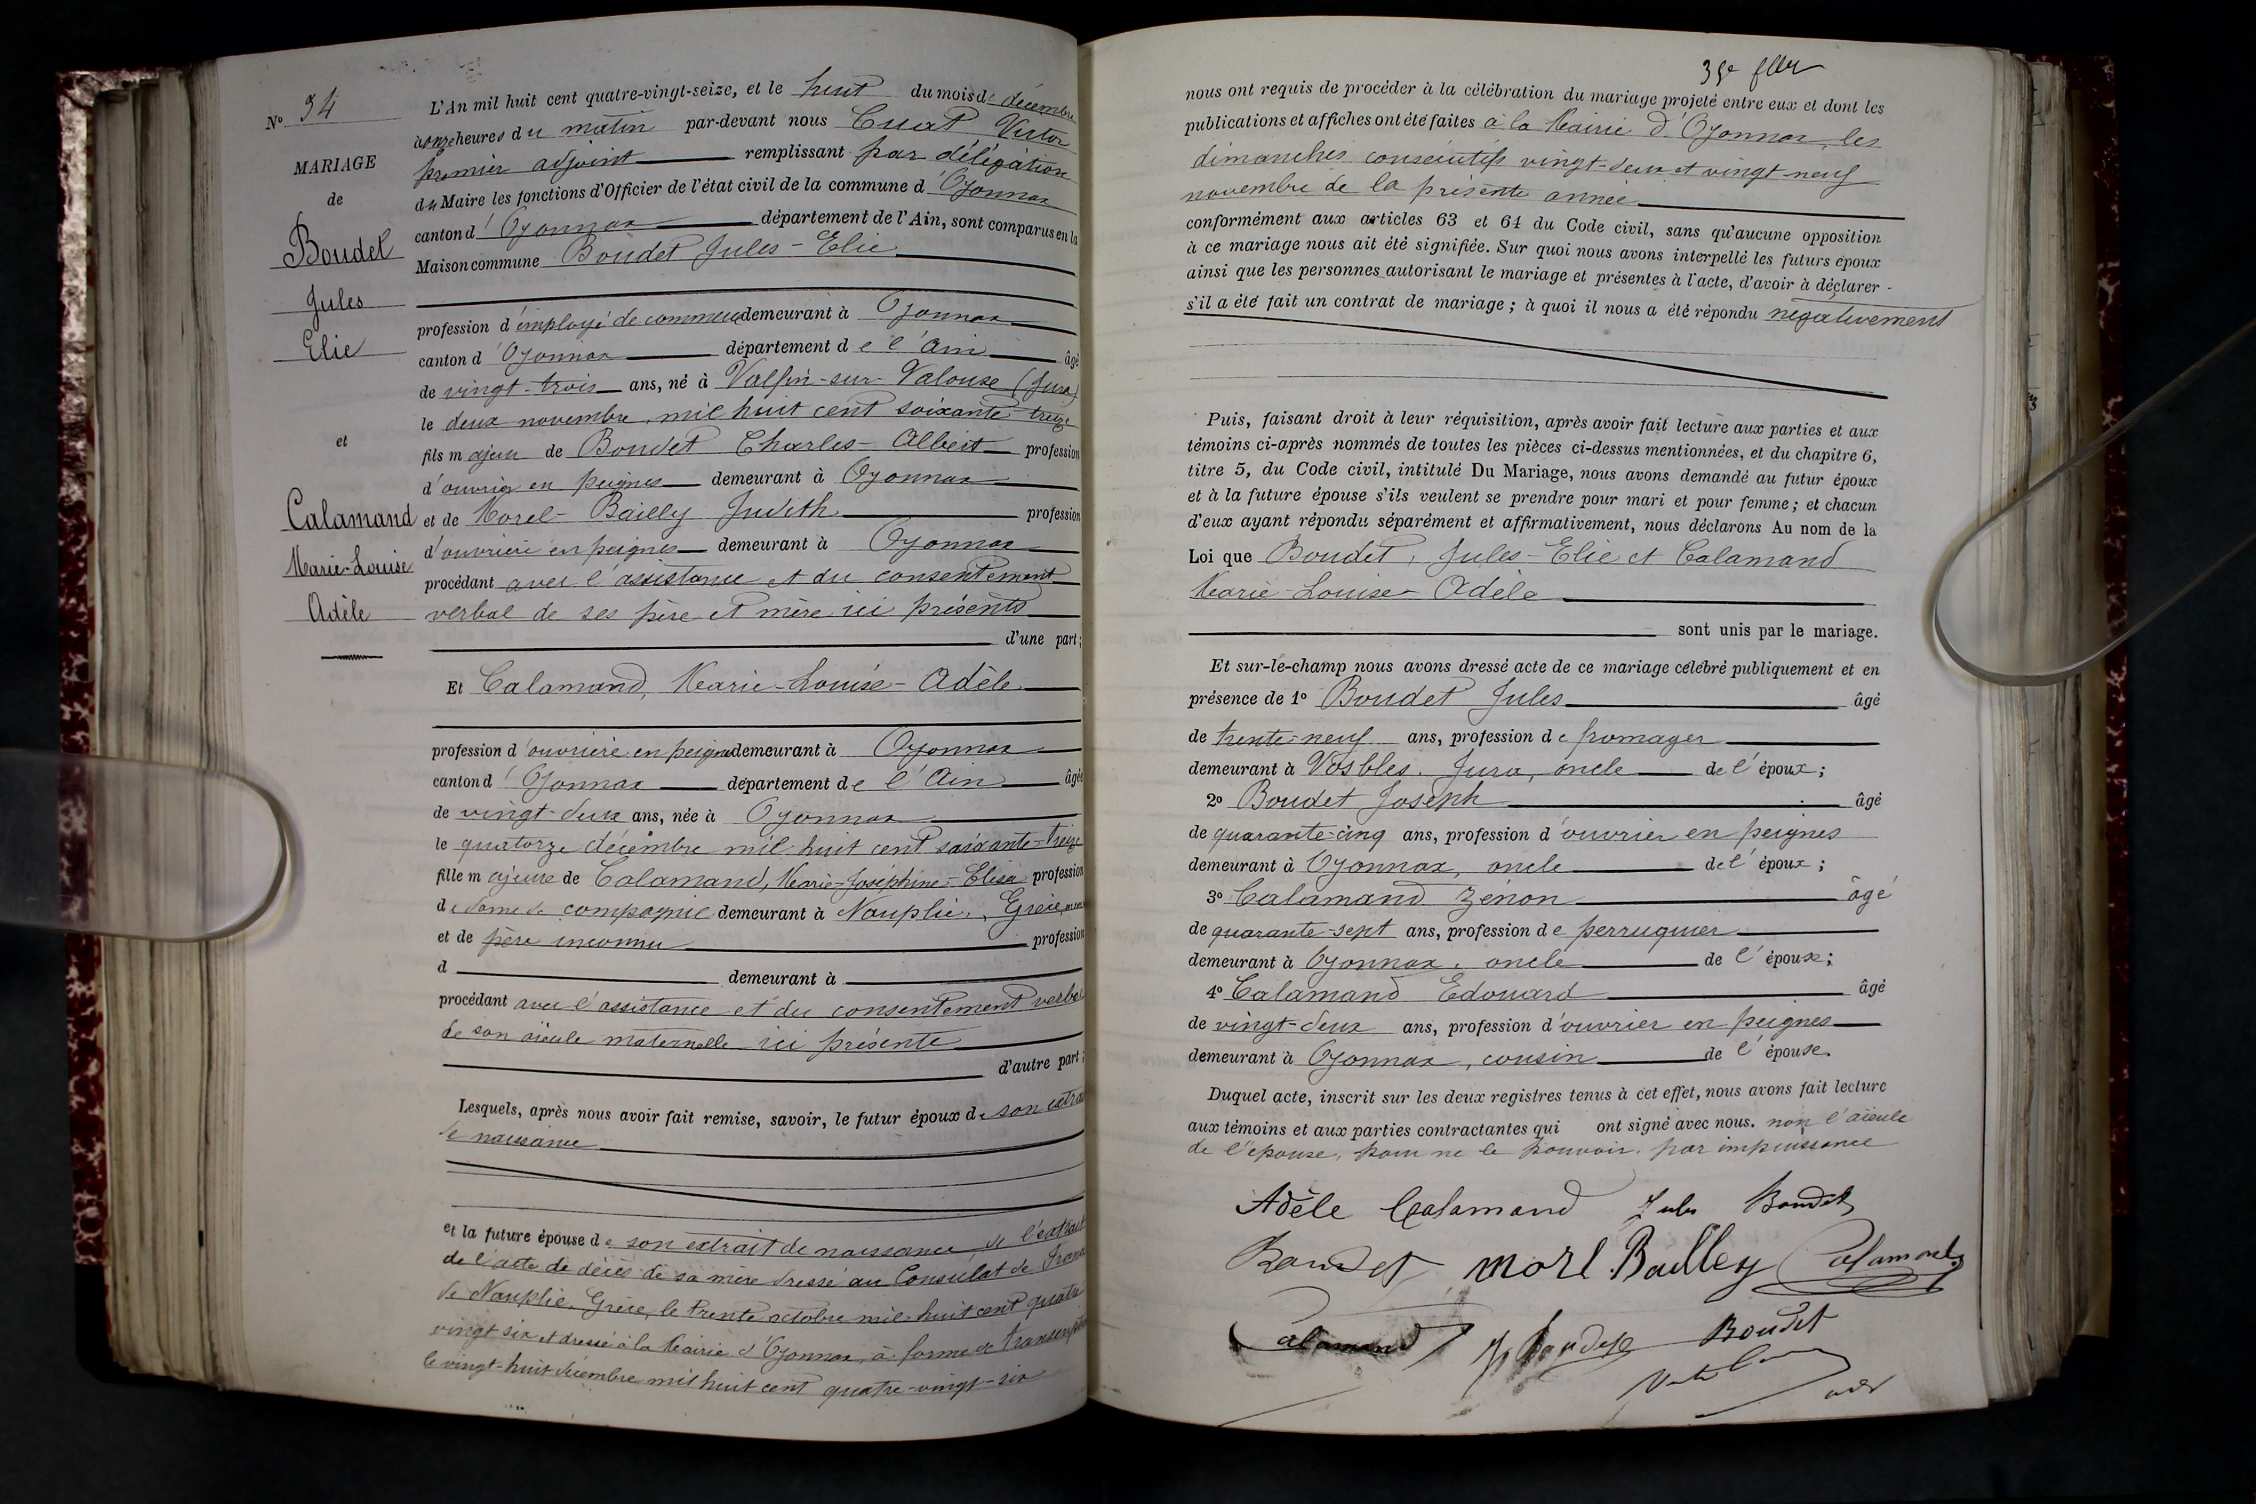 N° 34
MARIAGE
de
Boudet
Jules
Elie
et
Calamand
Marie-Louise
Adèle
L'An mil huit cent quatre-vingt-seize, et le huit du mois de décembre
à onze heures du matin par-devant nous Cuat Victor
premier adjoint remplissant par délégation
du Maire les fonctions d'Officier de l'état civil de la commune d'Oyonnax
canton d'Oyonnax département de l'Ain, sont comparus en la
Maison commune Boudet Jules-Elie
profession d'employé de commerce demeurant à Oyonnax
canton d'Oyonnax département de l'Ain âgé
de vingt-trois ans, né à Valfin-sur-Valouse (Jura)
le deux novembre mil huit cent soixante-treize
fils majeur de Boudet Charles-Albert profession
d'ouvrier en peignes demeurant à Oyonnax
et de Morel-Bailly Judith profession
d'ouvrière en peignes demeurant à Oyonnax
procédant avec l'assistance et du consentement
verbal de ses père et mère ici présents
d'une part;
Et Calamand, Marie-Louise-Adèle
profession d'ouvrière en peignes demeurant à Oyonnax
canton d'Oyonnax département de l'Ain âgée
de vingt-deux ans, née à Oyonnax
le quatorze décembre mil huit cent soixante-treize
fille majeure de Calamand, Marie-Joséphine-Elisa profession
de dame de compagnie demeurant à Nauplie, Grèce,
et de père inconnu profession
d demeurant à
procédant avec l'assistance et du consentement verbal
de son aïeule maternelle ici présente
d'autre part;
Lesquels, après nous avoir fait remise, savoir, le futur époux de son extrait
de naissance
et la future épouse de son extrait de naissance, de l'extrait
de l'acte de décès de sa mère dressé au Consulat de France
de Nauplie, Grèce, le trente octobre mil huit cent quatre
vingt six et dressé à la Mairie d'Oyonnax, à forme de transcription
le vingt-huit décembre mil huit cent quatre-vingt-six
nous ont requis de procéder à la célébration du mariage projeté entre eux et dont les
publications et affiches ont été faites à la Mairie d'Oyonnax, les
dimanches consécutifs vingt-deux et vingt-neuf
novembre de la présente année
conformément aux articles 63 et 64 du Code civil, sans qu'aucune opposition
à ce mariage nous ait été signifiée. Sur quoi nous avons interpellé les futurs époux
ainsi que les personnes autorisant le mariage et présentes à l'acte, d'avoir à déclarer
s'il a été fait un contrat de mariage; à quoi il nous a été répondu négativement
Puis, faisant droit à leur réquisition, après avoir fait lecture aux parties et aux
témoins ci-après nommés de toutes les pièces ci-dessus mentionnées, et du chapitre 6,
titre 5, du Code civil, intitulé Du Mariage, nous avons demandé au futur époux
et à la future épouse s'ils veulent se prendre pour mari et pour femme; et chacun
d'eux ayant répondu séparément et affirmativement, nous déclarons Au nom de la
Loi que Boudet, Jules-Elie et Calamand
Marie-Louise-Adèle
sont unis par le mariage.
Et sur-le-champ nous avons dressé acte de ce mariage célébré publiquement et en
présence de 1° Boudet Jules âgé
de trente-neuf ans, profession de fromager
demeurant à Vosbles, Jura, oncle de l'époux;
2° Boudet Joseph âgé
de quarante-cinq ans, profession d'ouvrier en peignes
demeurant à Oyonnax, oncle de l'époux;
3° Calamand Zénon âgé
de quarante-sept ans, profession de perruquier
demeurant à Oyonnax, oncle de l'épouse;
4° Calamand Edouard âgé
de vingt-deux ans, profession d'ouvrier en peignes
demeurant à Oyonnax, cousin de l'épouse.
Duquel acte, inscrit sur les deux registres tenus à cet effet, nous avons fait lecture
aux témoins et aux parties contractantes qui ont signé avec nous. non l'aïeule
de l'épouse, pour ne le pouvoir, par impuissance
Adèle Calamand Jules Boudet
Boudet morl Bailley Calamand
Calamand Boudet Boudet